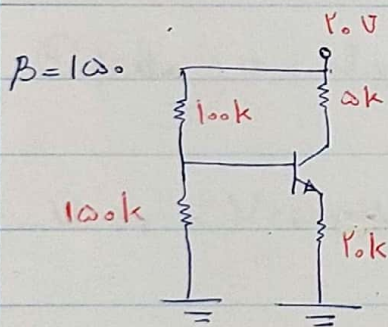 ۲۰ V
β = ۱۵۰
۱۰۰k
۵k
۱۵۰k
۲۰k